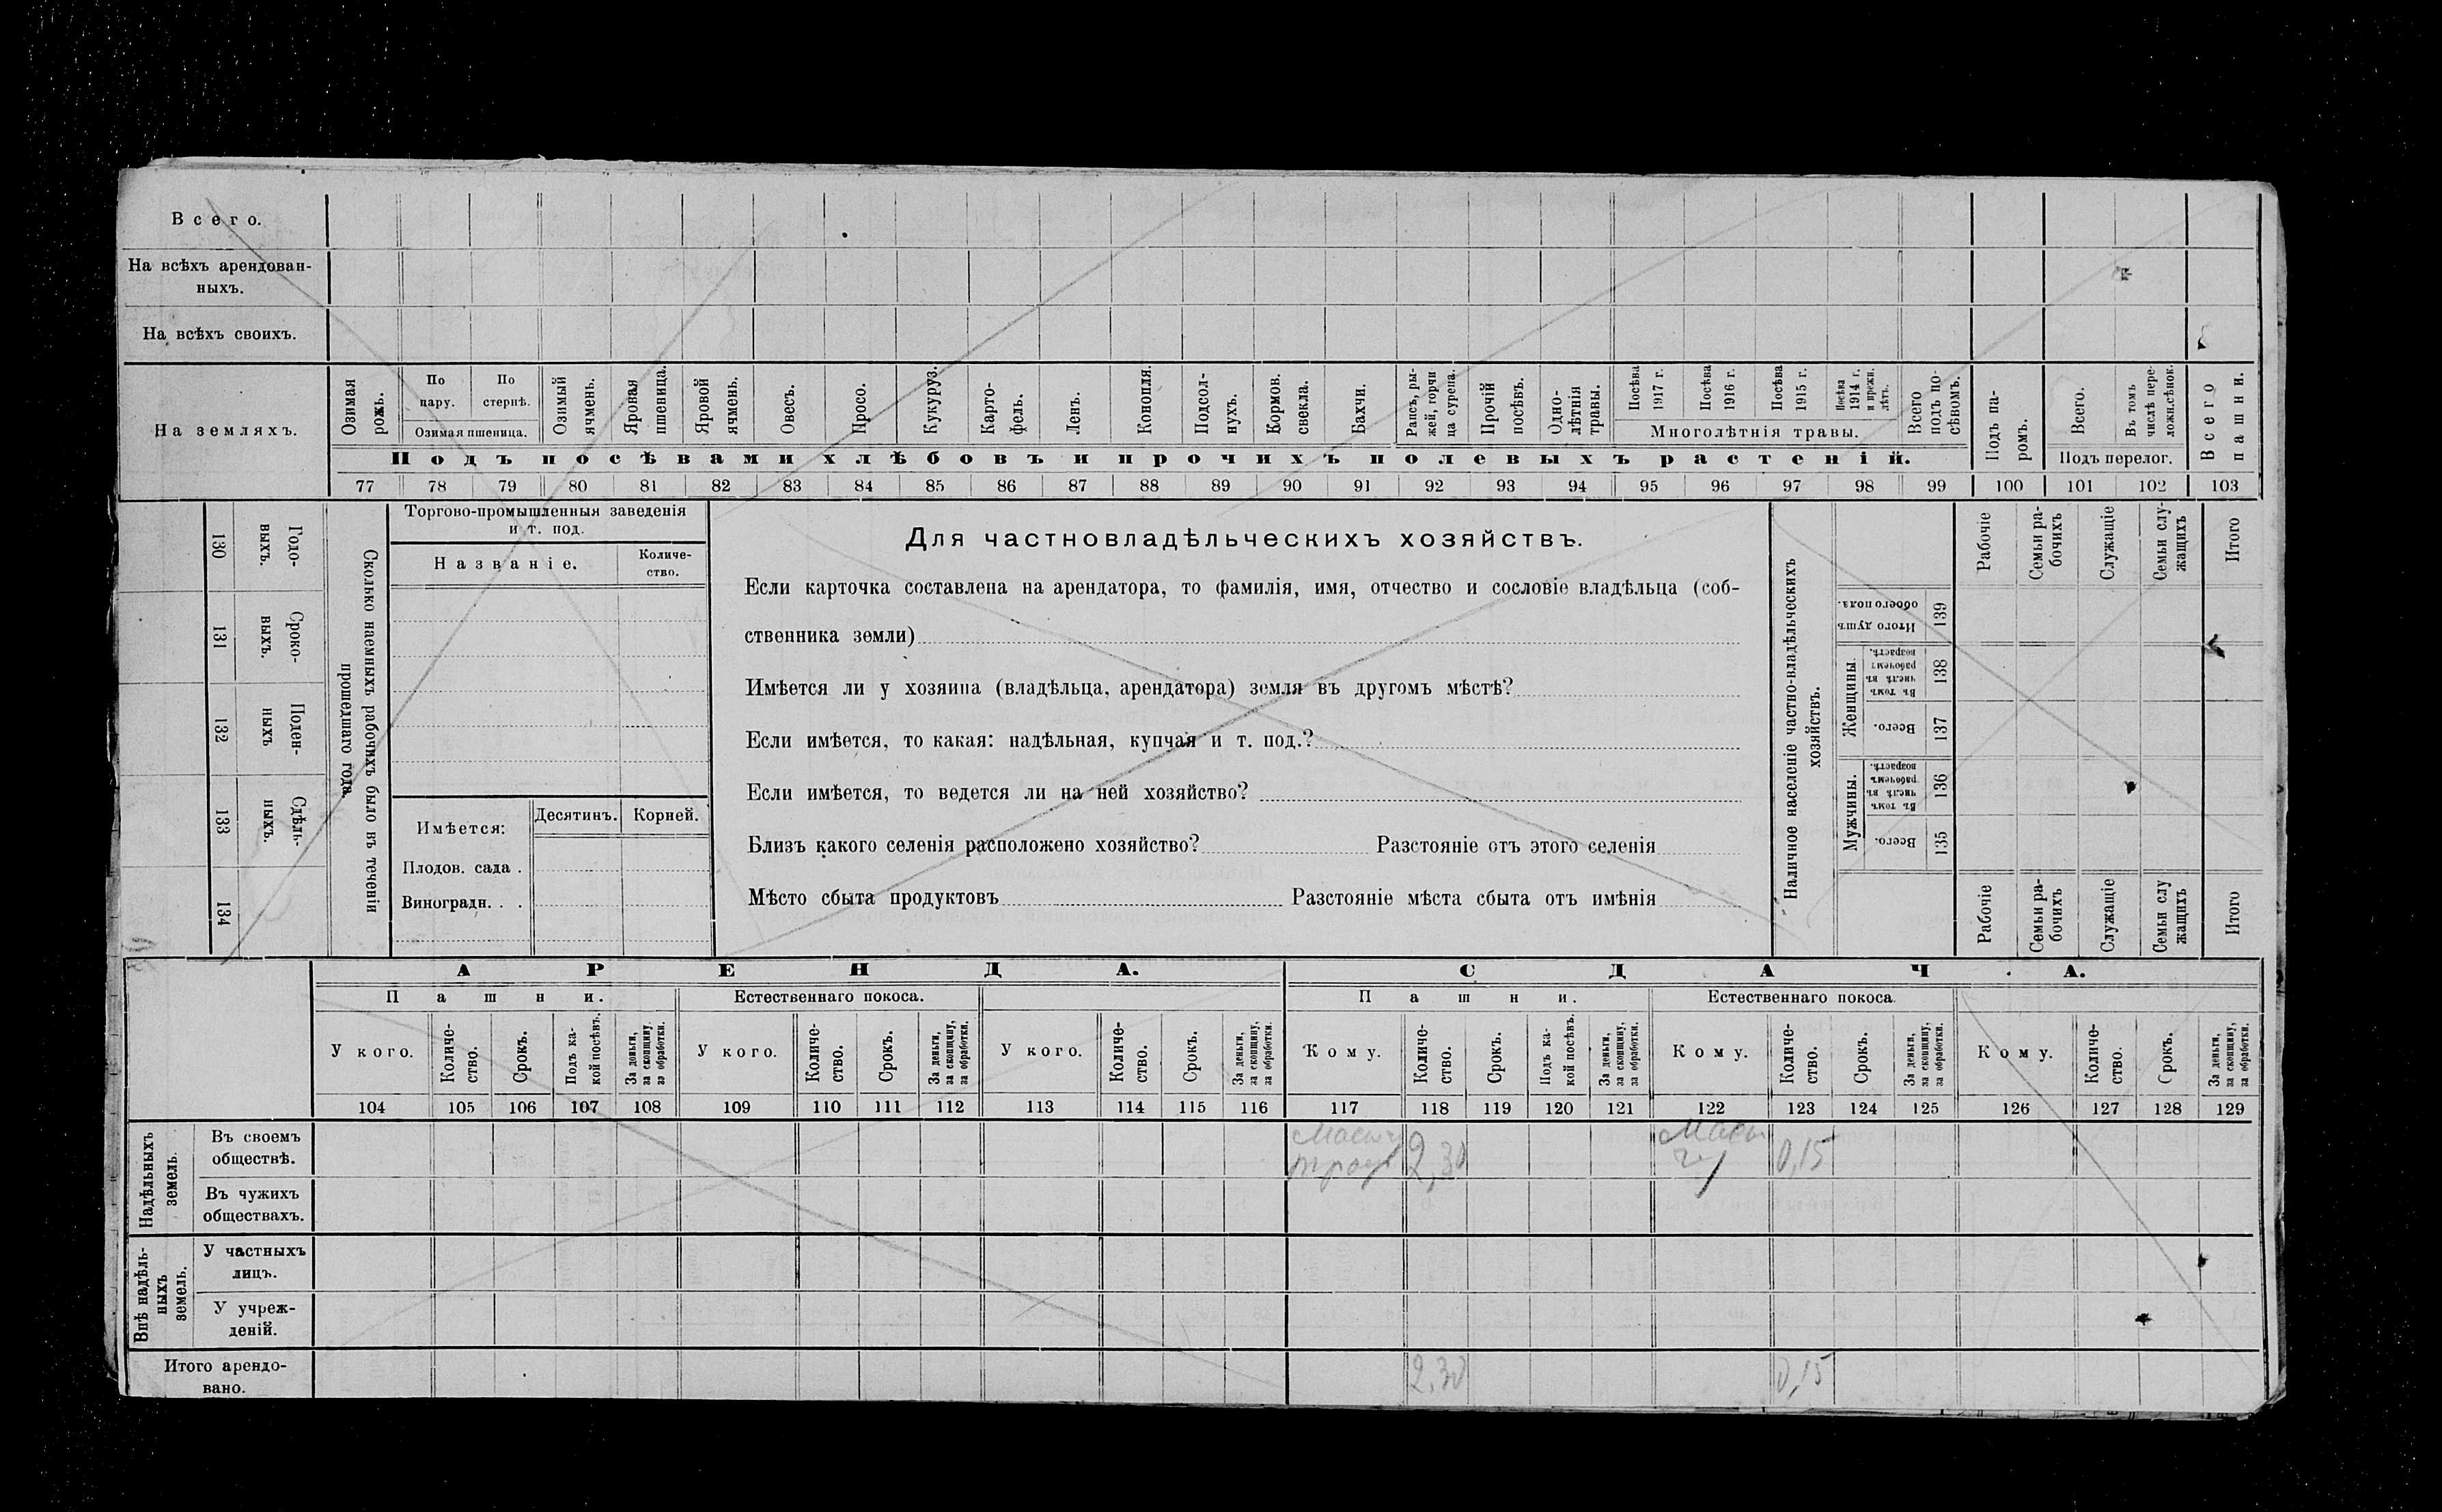 Всего.
На всѣхъ арендован-
ныхъ.
На всѣхъ своихъ.
На земляхъ.
Озимая рожь.
По пару.
По стернѣ.
Озимая пшеница.
Озимый ячмень.
Яровая пшеница.
Яровой ячмень.
Овесъ.
Просо.
Кукуруз.
Карто-
фель.
Ленъ.
Конопля.
Подсол-
нухъ.
Кормов. свекла.
Бахчи.
Рапсъ, ры-
жей, горчи
ца сурепа.
Прочій посѣвъ.
Одно-
лѣтнія травы.
Посѣва 1917 г.
Посѣва 1916 г.
Посѣва 1915 г.
Посѣва 1914 г. и прежн. лѣтъ.
Многолѣтнія травы.
Всего подъ по-
сѣвомъ.
Подъ па-
ромъ.
Всего.
Въ томъ числѣ пере-
ложн.сѣнок.
Подъ перелог.
Всего пашни.
Подъ посѣвами хлѣбовъ и прочихъ полевыхъ растеній.
77 78 79 80 81 82 83 84 85 86 87 88 89 90 91 92 93 94 95 96 97 98 99 100 101 102 103
130 Годо-
выхъ.
131 Сроко-
выхъ.
132 Поден-
ныхъ
133 Сдѣль-
ныхъ.
134
Сколько наемныхъ рабочихъ было въ теченіи
прошедшаго года.
Торгово-промышленныя заведенія
и т. под.
Названіе.
Количе-
ство.
Имѣется:
Десятинъ. Корней.
Плодов. сада .
Виноградн. . .
Для частновладѣльческихъ хозяйствъ.
Если карточка составлена на арендатора, то фамилія, имя, отчество и сословіе владѣльца (соб-
ственника земли)
Имѣется ли у хозяина (владѣльца, арендатора) земля въ другомъ мѣстѣ?
Если имѣется, то какая: надѣльная, купчая и т. под.?
Если имѣется, то ведется ли на ней хозяйство?
Близъ какого селенія расположено хозяйство? Разстояніе отъ этого селенія
Мѣсто сбыта продуктовъ Разстояніе мѣста сбыта отъ имѣнія
Наличное населеніе частно-владѣльческихъ
хозяйствъ.
Рабочіе
Семьи ра-
бочихъ
Служащіе
Семьи слу-
жащихъ
Итого
Итого душъ обоего пола.
139
Женщины
Въ томъ числѣ въ рабочемъ возрастѣ.
138
Всего.
137
Мужчины.
Въ томъ числѣ въ рабочемъ возрастѣ.
136
Всего.
135
Рабочіе
Семьи ра-
бочихъ
Служащіе
Семьи слу
жащихъ
Итого
АРЕНДА. СДАЧА.
Пашни. Естественнаго покоса. Пашни. Естественнаго покоса.
У кого.
Количе-
ство.
Срокъ.
Подъ ка-
кой посѣвъ.
За деньги,
за скопщину,
за обработки.
У кого.
Количе-
ство.
Срокъ.
За деньги,
за скопщину,
за обработки.
У кого.
Количе-
ство.
Срокъ.
За деньги,
за скопщину,
за обработки.
Кому.
Количе-
ство.
Срокъ.
Подъ ка-
кой посѣвъ.
За деньги,
за скопщину,
за обработки.
Кому.
Количе-
ство.
Срокъ.
За деньги,
за скопщину,
за обработки.
Кому.
Количе-
ство.
Срокъ.
За деньги,
за скопщину,
за обработки.
104 105 106 107 108 109 110 111 112 113 114 115 116 117 118 119 120 121 122 123 124 125 126 127 128 129
Надѣльныхъ
земель.
Въ своемъ
обществѣ.
2,30 0,15
Въ чужихъ
обществахъ.
Внѣ надѣль-
ныхъ
земель.
У частныхъ
лицъ.
У учреж-
деній.
Итого арендо-
вано.
2.30 0,15